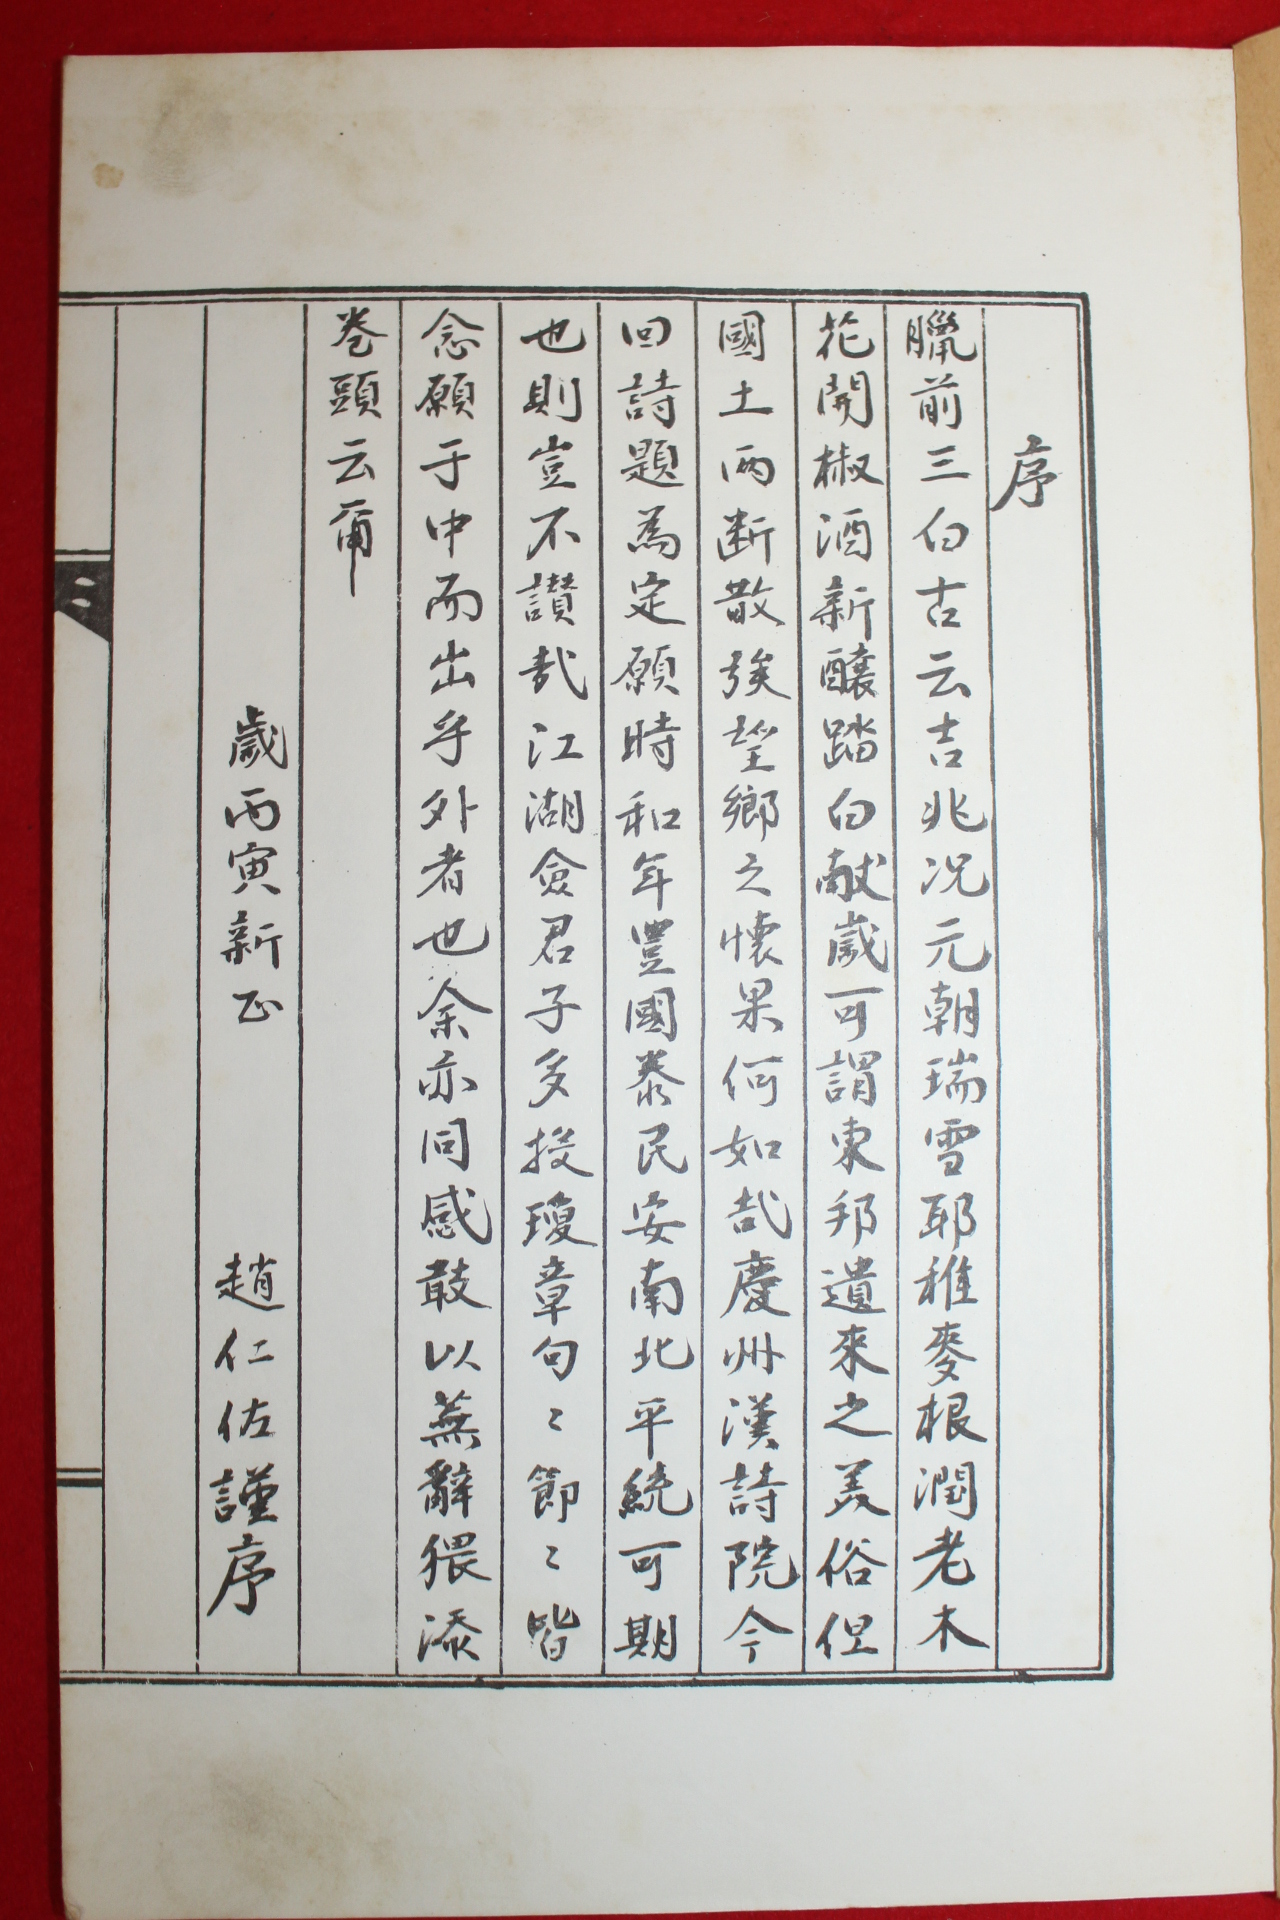 序
臘前三白古云吉兆况元朝瑞雪耶稚麥根潤老木
花開椒酒新釀踏白献歲可謂東邦遺來之美俗但
國土兩断散族望鄉之懷果何如哉慶州漢詩院今
回詩題為定願時和年豐國泰民安南北平統可期
也則豈不讃哉江湖僉君子多投瓊章句〻節〻皆
念願于中而出乎外者也余亦同感敢以蕪辭猥添
卷頭云爾
歲丙寅新正 趙仁佑謹序
二